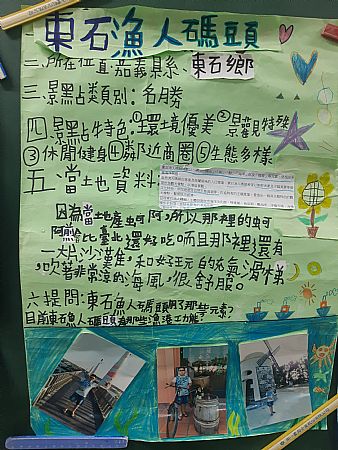 東石漁人碼頭
二、所在位直嘉義県系、東石鄉
三 景點占類別：名勝
四景點占特色①環境優美②景觀特殊
③休閒健身④鄰近商圈⑤生態多樣
五、當土地資料
因為當地產蚵阿，所以那裡的蚵
阿煎會比臺北還好吃而且那裡還有
一大片沙灘，和女子玩的充氣滑梯
吹著非常涼的海風，很舒服。
六提問：東石漁人碼頭用了那些元素？
目前東石漁人碼頭有那些漁港工力能？